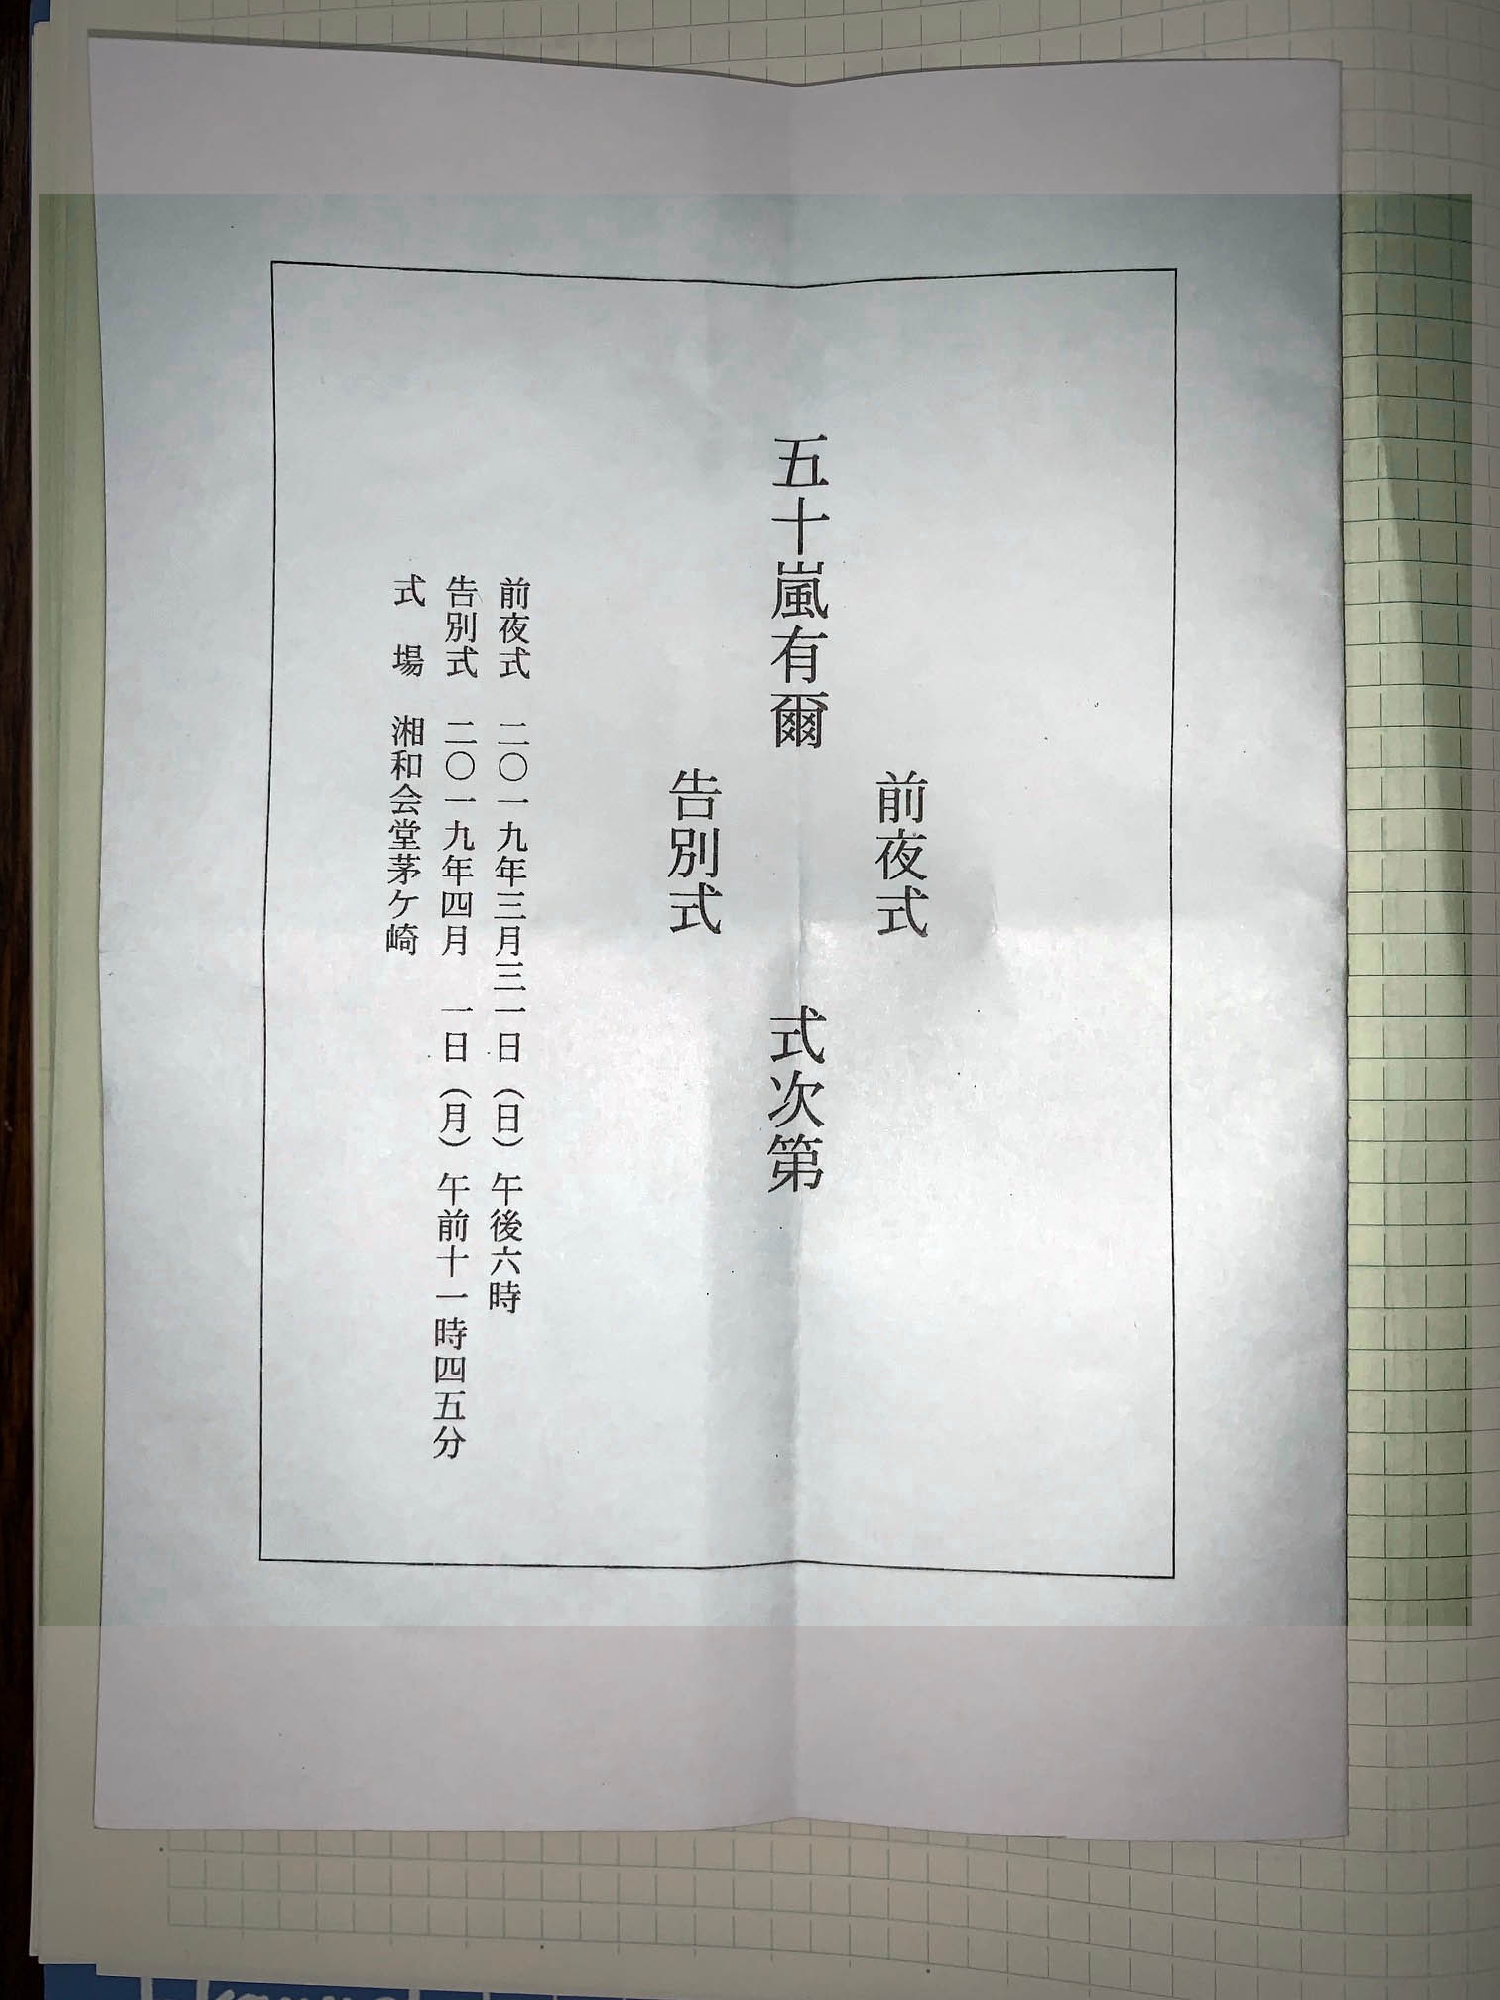 前夜式
五十嵐有爾 式次第
告別式
前夜式 二〇一九年三月三一日(日)午後六時
告別式 二〇一九年四月 一日(月)午前十一時四五分
式 場 湘和会堂茅ケ崎